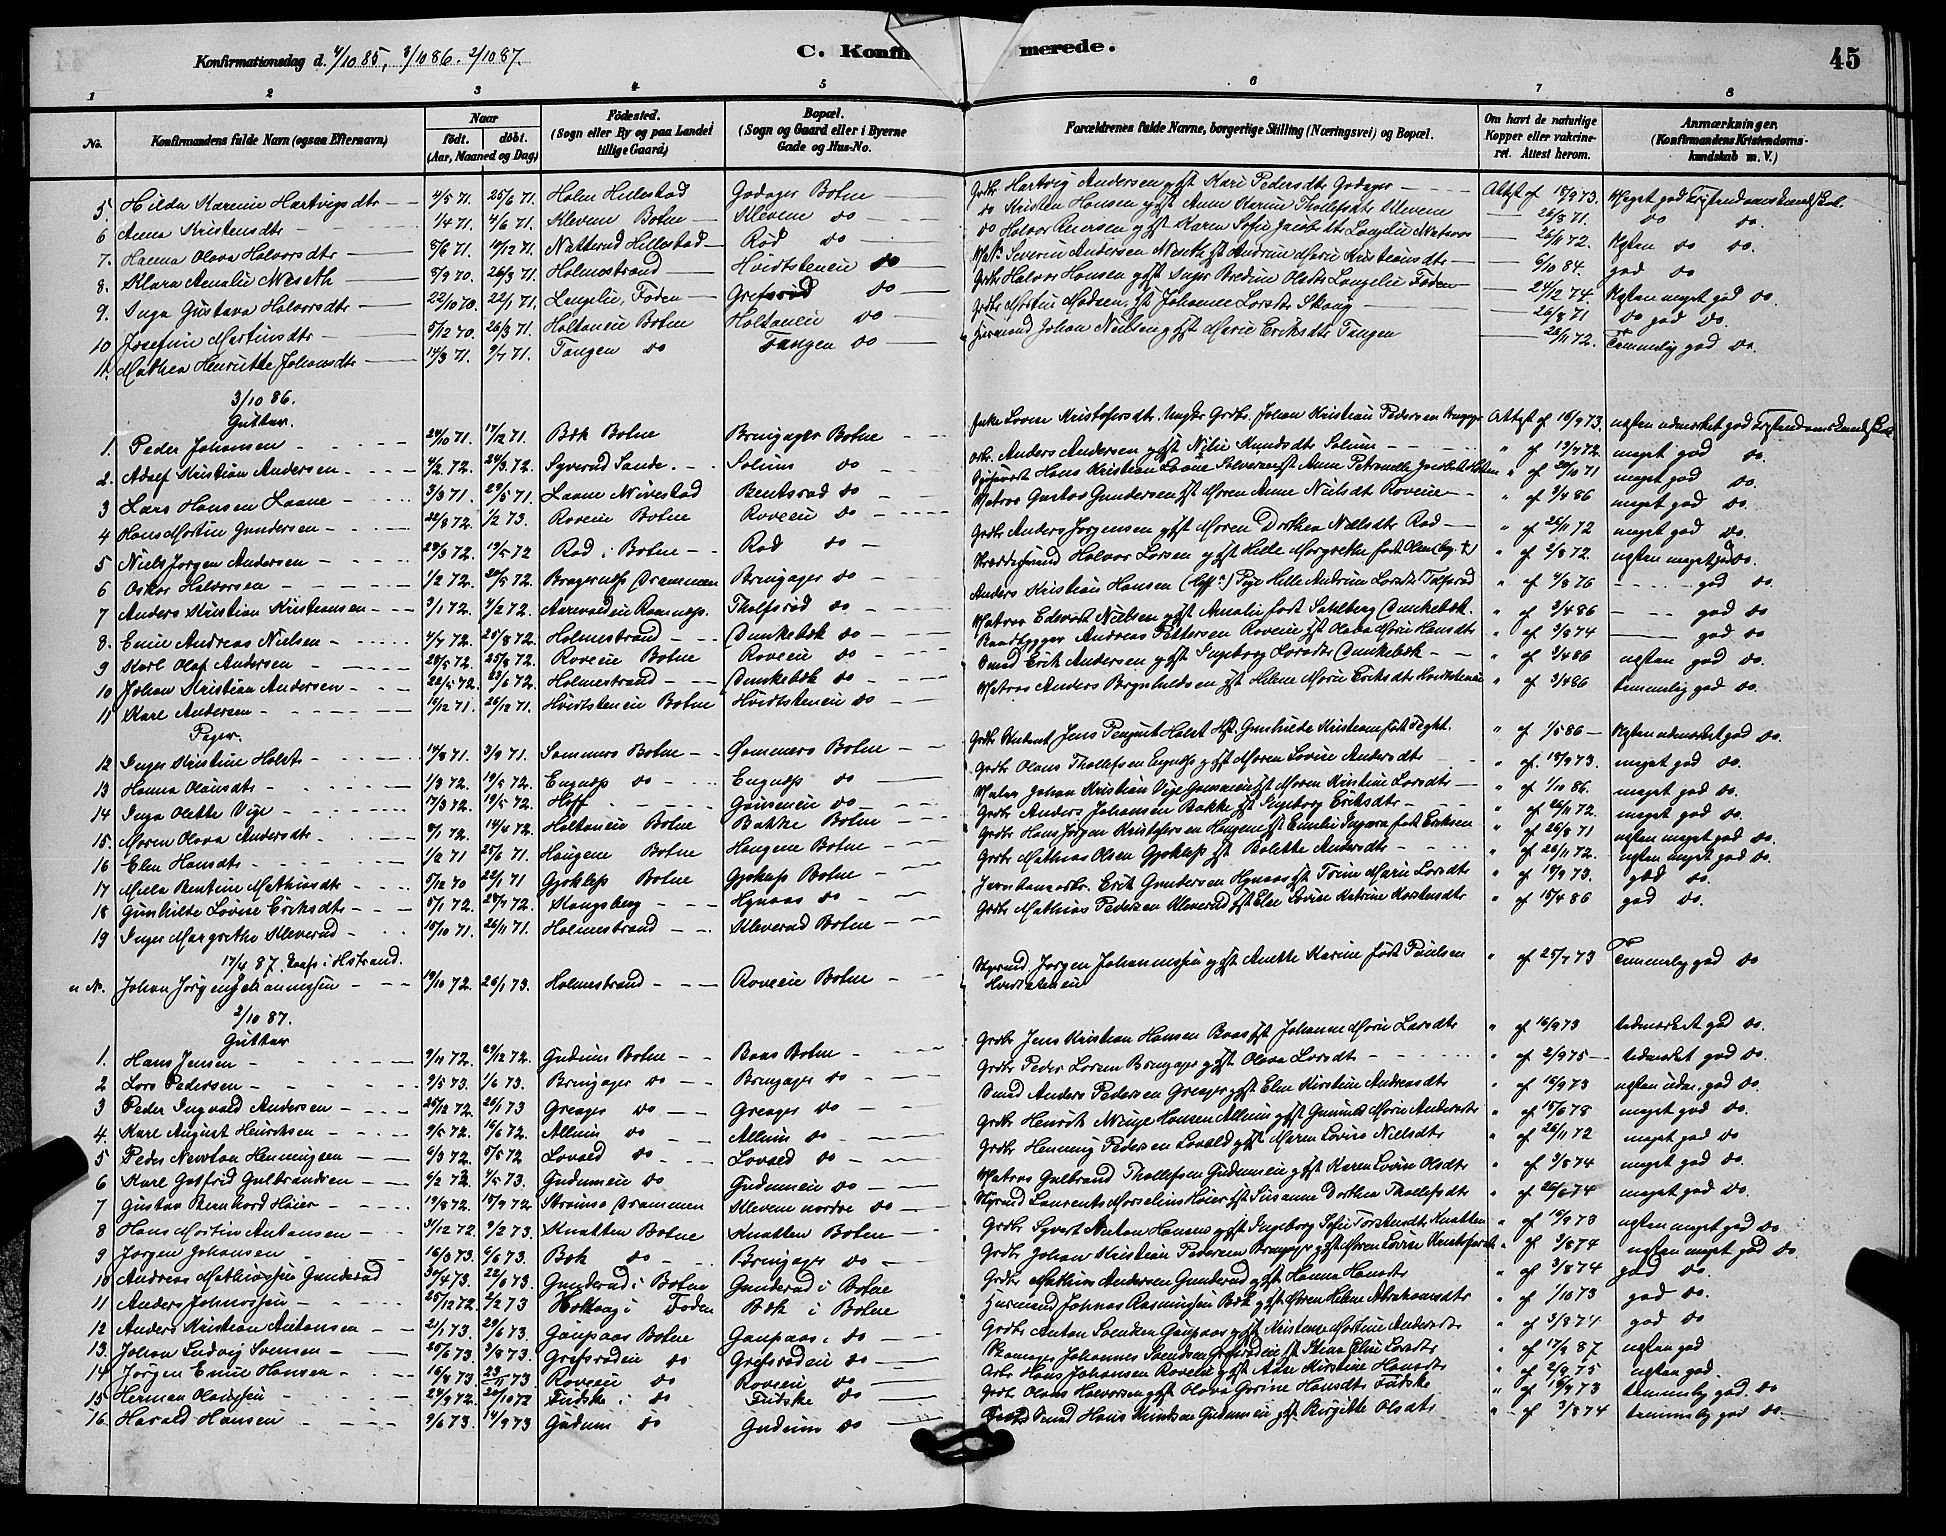 Konfirmationsdag d. 4/10 85, 3/10 86. 2/10 87.
C. Konfir merede.
45
1 2 3 4 5 6 7 8
No.
Konfirmandens fulde Navn (ogsaa Efternavn)
Naar
født. døbt.
(Aar, Maaned og Dag)
Fødested.
(Sogn eller By og paa Landet
tillige Gaard)
Bopæl.
(Sogn og Gaard eller i Byerne
Gade og Hus-No.
Forældrenes fulde Navne, borgerlige Stilling (Næringsvei) og Bopæl.
Om havt de naturlige
Kopper eller vakcine-
ret. Attest herom.
Anmærkninger.
(Konfirmandens Kristendoms-
kundskab m. V.)
5. Hilda Karenie Hartvigsdtr 4/5 71. 25/6 71. Holm Hillestad Godager Botne Grdbr Hartvig Andersen gst Kari Pedersdtr Godager Attest af 18/9 73. Meget god
6 Anna Kristensdtr 1/4 71. 4/6 71. Klevem Botne Klevem do do Kristen Hansen gst Anne Karine Thollefsdtr Klevem 26/8 71. do do.
7. Hanna Olava Halvorsdtr 8/6 71. Nøtterud Hillestad Rød do do Halvor Karen Sofie Jacobsdtr 26/11 72. Næsten do do.
8. Klara Amalie Meseth 8/9 70. 26/3 71. Holmestrand Hvidtstenen do Severin Andersen Meseth gst Andrine Marie Kristiansdtr 6/10 84. god do
9. Inga Gustava Halvorsdtr 22/10 70. 22/1 71. Langelie, Foden Grefsrød do Grdbr Halvor Hansen gst Inger Bredine Olsdtr Langelie Foden 24/12 74. Næsten meget god do.
10 Josefine Martinsdtr 5/12 70. 26/3 71. Holtaneie Botne Holtaneie do Grdbr Martin Madsen, gst Johanne Larsdtr Skaug 26/8 71 do god do.
11. Mathea Henriette Johansdtr 14/3 71. 9/4 71. Tangen do Tangen do Husmand Johan Nielsen gst Marie Eriksdtr Tangen 26/11 72. Temmelig god do.
3/10 86.
Gutter.
1. Peder Johansen 24/10 71. 17/12 71. Bæk Botne Bringager Botne Enke Lovise Kristofersdtr. Ungkr Grdbr. Johan Kristian Pedersen Attest af 18/9 73. næsten udmærket god
2. Adolf Kristian Andersen 4/2 72. 24/3 72. Syverud Sande. Solum do Anders Andersen gst Nilie Knudsdt Solum " af 19/9 72. meget god do.
3 Lars Hansen Laane 3/3 71. 29/5 71. Laane Nivestad Bentsrød do Hans Kristian Laane gst Anne Petronelle " af 20/10 71 meget god do.
4 Hans Martin Gundersen 22/8 72. 1/2 73. Roveie Botne Roveie do Matros Gustav Gundersen gst Maren Anne Nielsdt Roveie " af 3/4 86 meget god do.
5 Niels Jørgen Andersen 28/3 72. 19/5 72 Rød i Botne Rød do Grdbr Anders Jørgensen gst Maren Dorthea Nielsdtr Rød " af 26/11 72 meget god do.
6 Oskar Halvorsen 1/2 72. 20/5 72. Bragernæs Drammen Bringager do Halvor Larsen gst Helle Margrethe født Olsen " af 2/8 72. næsten meget god do.
7 Anders Kristian Kristiansen 3/1 72. 4/2 72. Aarevoldeie Ramnæs. Tholfsrød do Anders Kristian Hansen Pige Helle Andrine Larsdtr Tolfsrød " af 3/8 76 god do.
8. Emil Andreas Nielsen 4/7 72. 25/8 72. Holmestrand Dunkebæk do Matros Edevart Nielsen gst Amalie født Sahlberg Dunkebæk. " af 3/4 86 god do
9 Karl Olaf Andersen 28/5 72. 25/8 72. Roveie Botne Roveie do Andreas Pettersen Roveie gst Olava Marie Hansdtr " af 3/8 74 god do
10 Johan Kristian Andersen 22/5 72. 23/6 72. Holmestrand Dunkebæk do Smed Erik Andersen gst Ingeborg Larsdtr Dunkebæk " af 3/4 86 næsten god do.
11 Karl Andersen 19/12 71. 26/12 71. Hvidtstenen Botne Hvidtstenen do Matros Anders Brynhildsen gst Helene Marie Eriksdt Hvidtstenen " af 3/4 86 temmelig god do.
Piger.
12 Inger Kristine Holst 14/8 71. 3/9 71. Sommers Botne Sommers Botne Grdbr Student Jens Holst gst. Gunhilde Kristiane født " af 1/5 86 Næsten udmærket god do.
13 Hanna Olausdtr 1/3 72. 19/5 72. Engnæs do Engnæs do Grdbr Olaus Thollefsen Engnæs gst Maren Lovise Andersdt " af. 18/9 73. meget god do.
14 Inga Olette Vige 17/3 72. 19/5 72. Hoff Gausenie do Johan Kristian Vige gst Maren Kristine Larsdtr " af 1/10 86. meget god do.
15. Maren Olava Andersdtr. 9/1 72. 14/4 72. Holtaneie Botne Bakke Botne Grdbr Anders Johansen Bakke gst Ingeborg Eriksdtr " af 26/11 72. meget god do.
16 Elen Hansdtr 1/2 71 25/6 71. Haugene Botne Haugene Botne Grdbr Hans Jørgen Kristofersen Haugene gst Emilie født Eriksen " af 26/8 71 næsten meget god do.
17 Mila Bentine Mathiasdtr 5/12 70 22/1 71 Gjeklep Botne Gjeklep Botne Grdbr Mathias Olsen Gjeklep gst Bolette Andersdt " af 26/11 72. næsten meget god do.
18 Gunhilde Lovise Eriksdtr 5/1 72. 28/4 72. Kongsberg Hynaas do Erik Gundersen Hynaas gst Trine Marie Larsdtr " af 18/9 73. god do.
19 Inger Margrethe Kleverud 15/10 71. 26/11 71. Holmestrand Kleverud Botne Grdbr Mathias Pedersen Kleverud gst Else Lovise Katrine Karstensdtr " af 15/4 86 god do.
17/4 87. i Hstrand.
Johan Jørgen Johannessen 19/10 72. 26/1 73. Holmestrand Roveie Botne Jørgen Johannessen gst Anette Karine født Paulsen Hvidtstenen " af 25/7 73 Temmelig god do
2/10 87.
Gutter
1. Hans Jensen 9/11 72. 29/12 72. Gudum Botne Baas Botne Grdbr Jens Kristian Hansen Baas gst Johanne Marie Larsdtr " af 16/9 73 Udmærket god do.
2 Lars Pedersen 9/5 73. 1/6 73. Bringager do Bringager do Grdbr Peder Larsen Bringager gst Olava Larsdt " af 2/9 75 Udmærket god do.
3 Peder Ingvald Andersen 25/12 72. 26/1 73 Greager do Greager do Smed Anders Pedersen Greager gst Elen Kirstine Andreasdt " af 16/9 73 næsten udm. god do
4. Karl August Henriksen 9/5 72. 16/6 72. Allum do Allum do Grdbr Henrik Hansen Allum gst Marie Andersdtr " af 15/6 78 meget god do.
5 Peder Newton Henningsen 9/3 72. 5/5 72 Lovald do Lovald do Grdbr Henning Pedersen Lovald gst Maren Lovise Nielsdtr " af 26/11 72 meget god do
6 Karl Gotfrid Gulbrandsen 6/2 72. 4/5 73. Gudumeie do Gudumeie do Matros Gulbrand Thollefsen Gudumeie gst Karen Lovise Olsdtr " af 3/8 74 meget god do.
7 Gustav Bernhard Høier 19/8 72. 15/9 72. Strømsø Drammen Klevem nordre do Styrmd Laurents Marselius Høier gst Susanne Dorthea Thollefsdtr " af 26/6 74 meget god do.
8 Hans Martin Antonsen 31/12 72. 9/2 73. Knatten Botne Knatten Botne Grdbr Syvert Anton Hansen gst Ingeborg Sofie Torstensdt Knatten " af 16/9 73 næsten meget god do
9 Jørgen Johansen 16/3 73. 6/6 73. Bæk do Bringager do Grdbr Johan Kristian Pedersen Bringager gst Maren Lovise Kristofersdt " af 3/8 74 næsten meget god do.
10 Andreas Mathiassen Gunderød 30/4 73. 22/6 73. Gunderød i Botne Gunderød i Botne Grdbr Mathias Andersen Gunderød gst Hanna Hansdtr " af 3/8 74 god do.
11 Anders Johnassen 25/12 72. 2/2 73 i Foden Bæk i Botne Husmand Johnas Rasmussen Bæk gst Maren Helene Abrahamsdtr " af 1/10 73 god do.
12 Anders Kristian Antonsen 21/1 73. 29/6 73. Gaupaas Botne Gaupaas i do Grdbr Anton Svendsen Gaupaas gst Kristense Martine Andersdtr " af 3/8 74 god do
13. Johan Ludvig Svensen 25/6 73. 3/8 73. Grefsrødeie do Grefsrødeie do Skomager Johannes Svendsen Grefsrødeie gst Stina Eline Larsdtr " af 17/8 87 næsten god
14 Jørgen Emil Hansen 16/8 73. Roveie do Roveie do Arbr Hans Johansen Roveie gst Anne Kirstine Hansdtr " af 2/9 75 næsten god.
15 Herman Olaussen 24/9 72. 20/10 72 Fuske i do Fuske do Grdbr Olaus Halvorsen gst Olava Gurine Hansdtr Fuske " af 16/9 73 temmelig god. do
16. Harald Hansen 9/6 73. 14/9 73 Gudum do Gudum do Smed Hans Knudsen Gudumeie gst. Birgitte Olsdtr " af 3/8 74 temmelig god do.